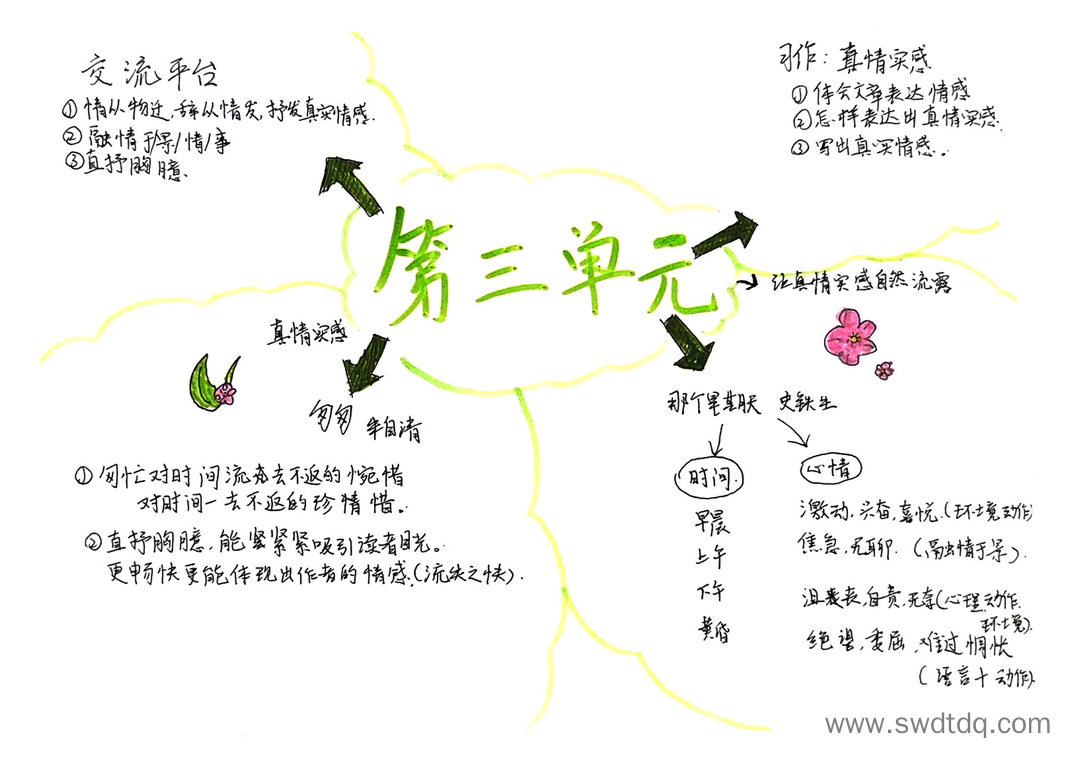 交流平台
①情从物迁，辞从情发，抒发真实情感.
②融情于景/情/事
③直抒胸臆.
习作：真情实感
①体会文章表达情感
②怎样表达出真情实感
③写出真实情感。
第三单元
让真情实感自然流露
真情实感
匆匆 朱自清
①匆忙对时间流逝去不返的惋惜
对时间一去不返的珍情惜。
②直抒胸臆，能紧紧紧吸引读者目光。
更畅快更能体现出作者的情感.(流失之快).
那个星期天 史铁生
时间
早晨
上午
下午
黄昏
心情
激动，兴奋，喜悦.(环境动作)
焦急，无聊. (融情于景).
沮丧，自责，无奈(心理动作.
环境).
绝望，委屈，难过惆怅
(语言+动作).
www.swdtdq.com